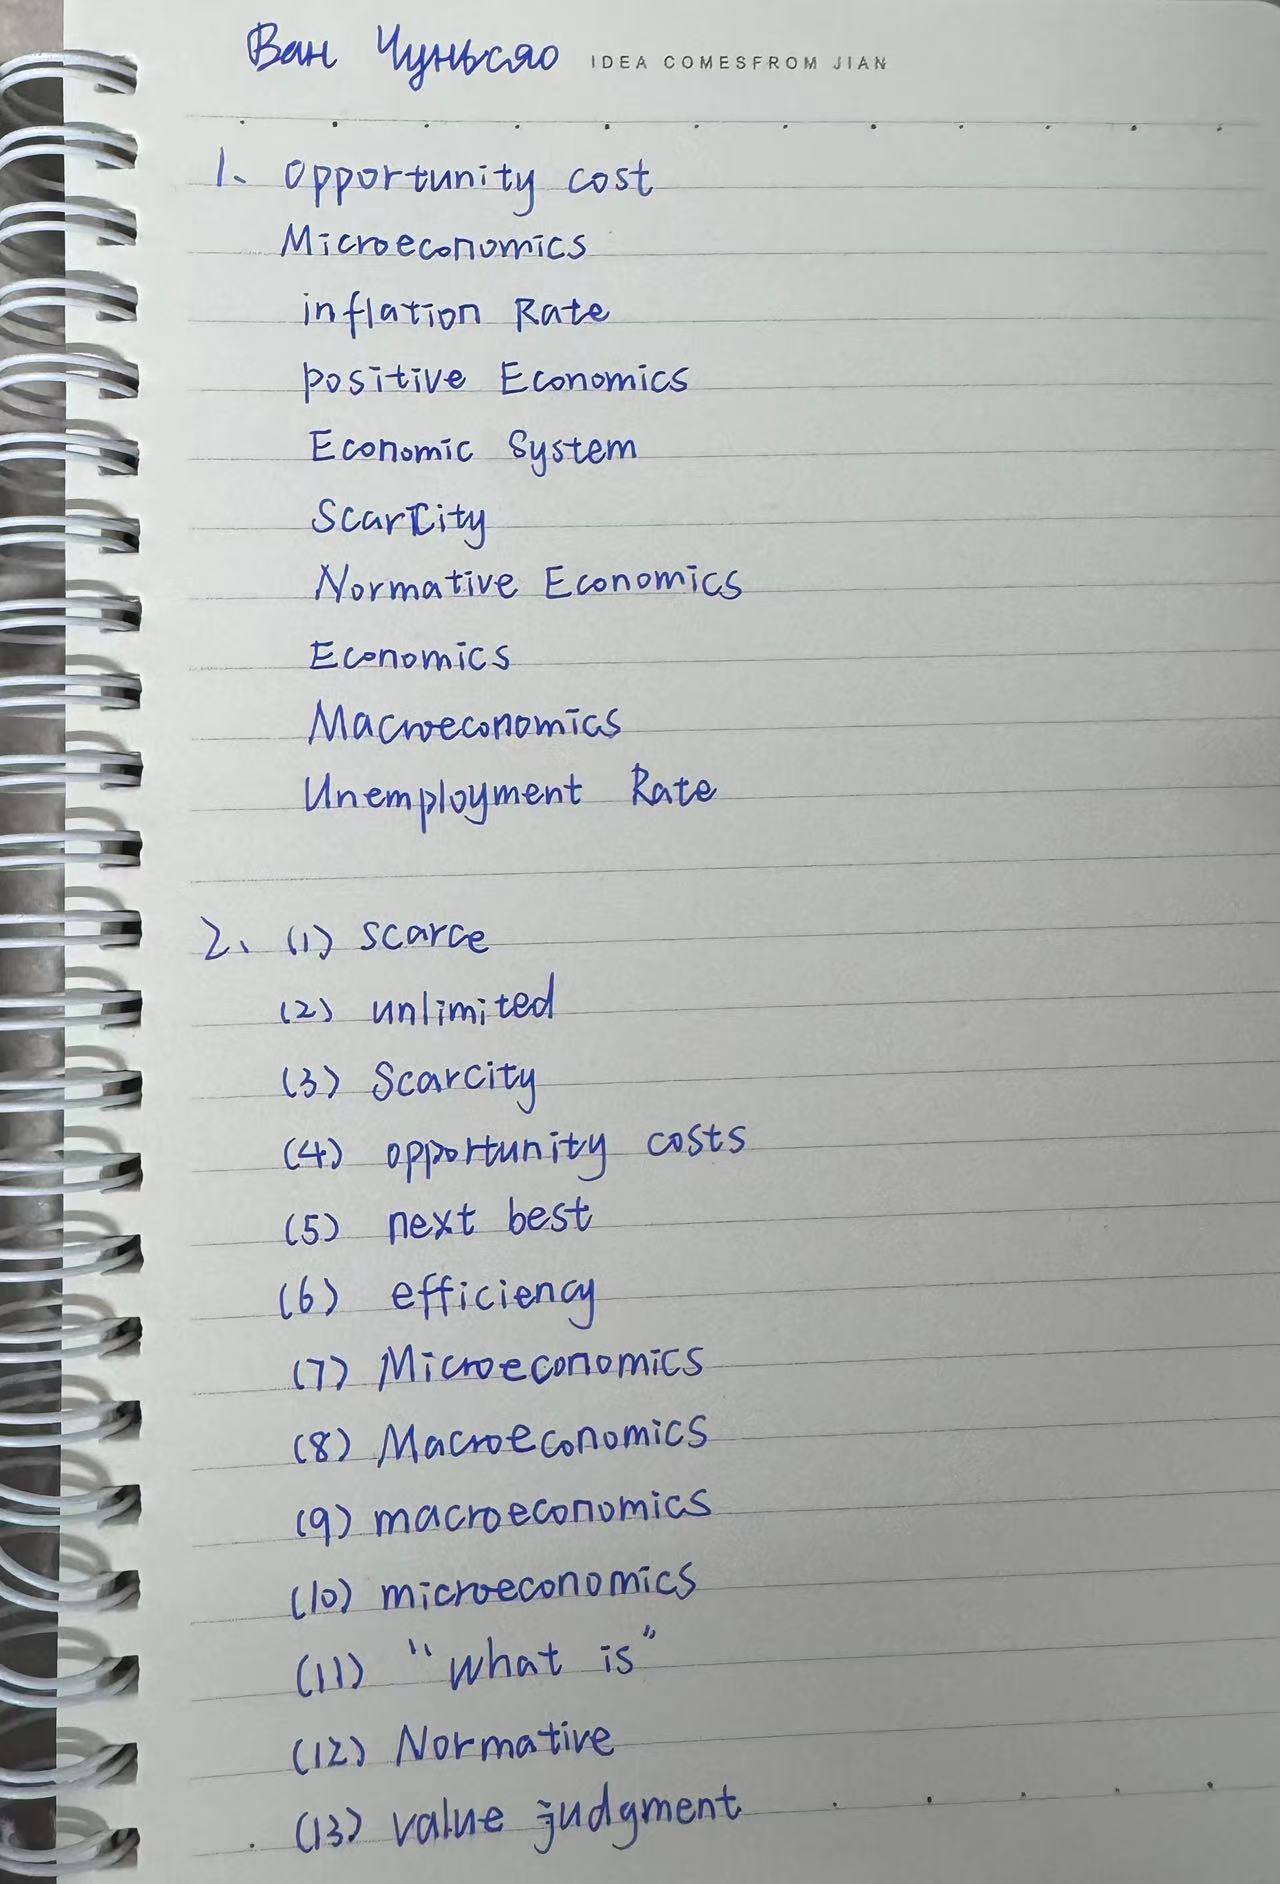 Ван Чуньсяо IDEA COMESFROM JIAN
1、opportunity cost
Microeconomics
inflation Rate
positive Economics
Economic System
Scarcity
Normative Economics
Economics
Macroeconomics
Unemployment Rate
2、(1) scarce
(2) unlimited
(3) Scarcity
(4) opportunity costs
(5) next best
(6) efficiency
(7) Microeconomics
(8) Macroeconomics
(9) macroeconomics
(10) microeconomics
(11) "what is"
(12) Normative
(13) value judgment